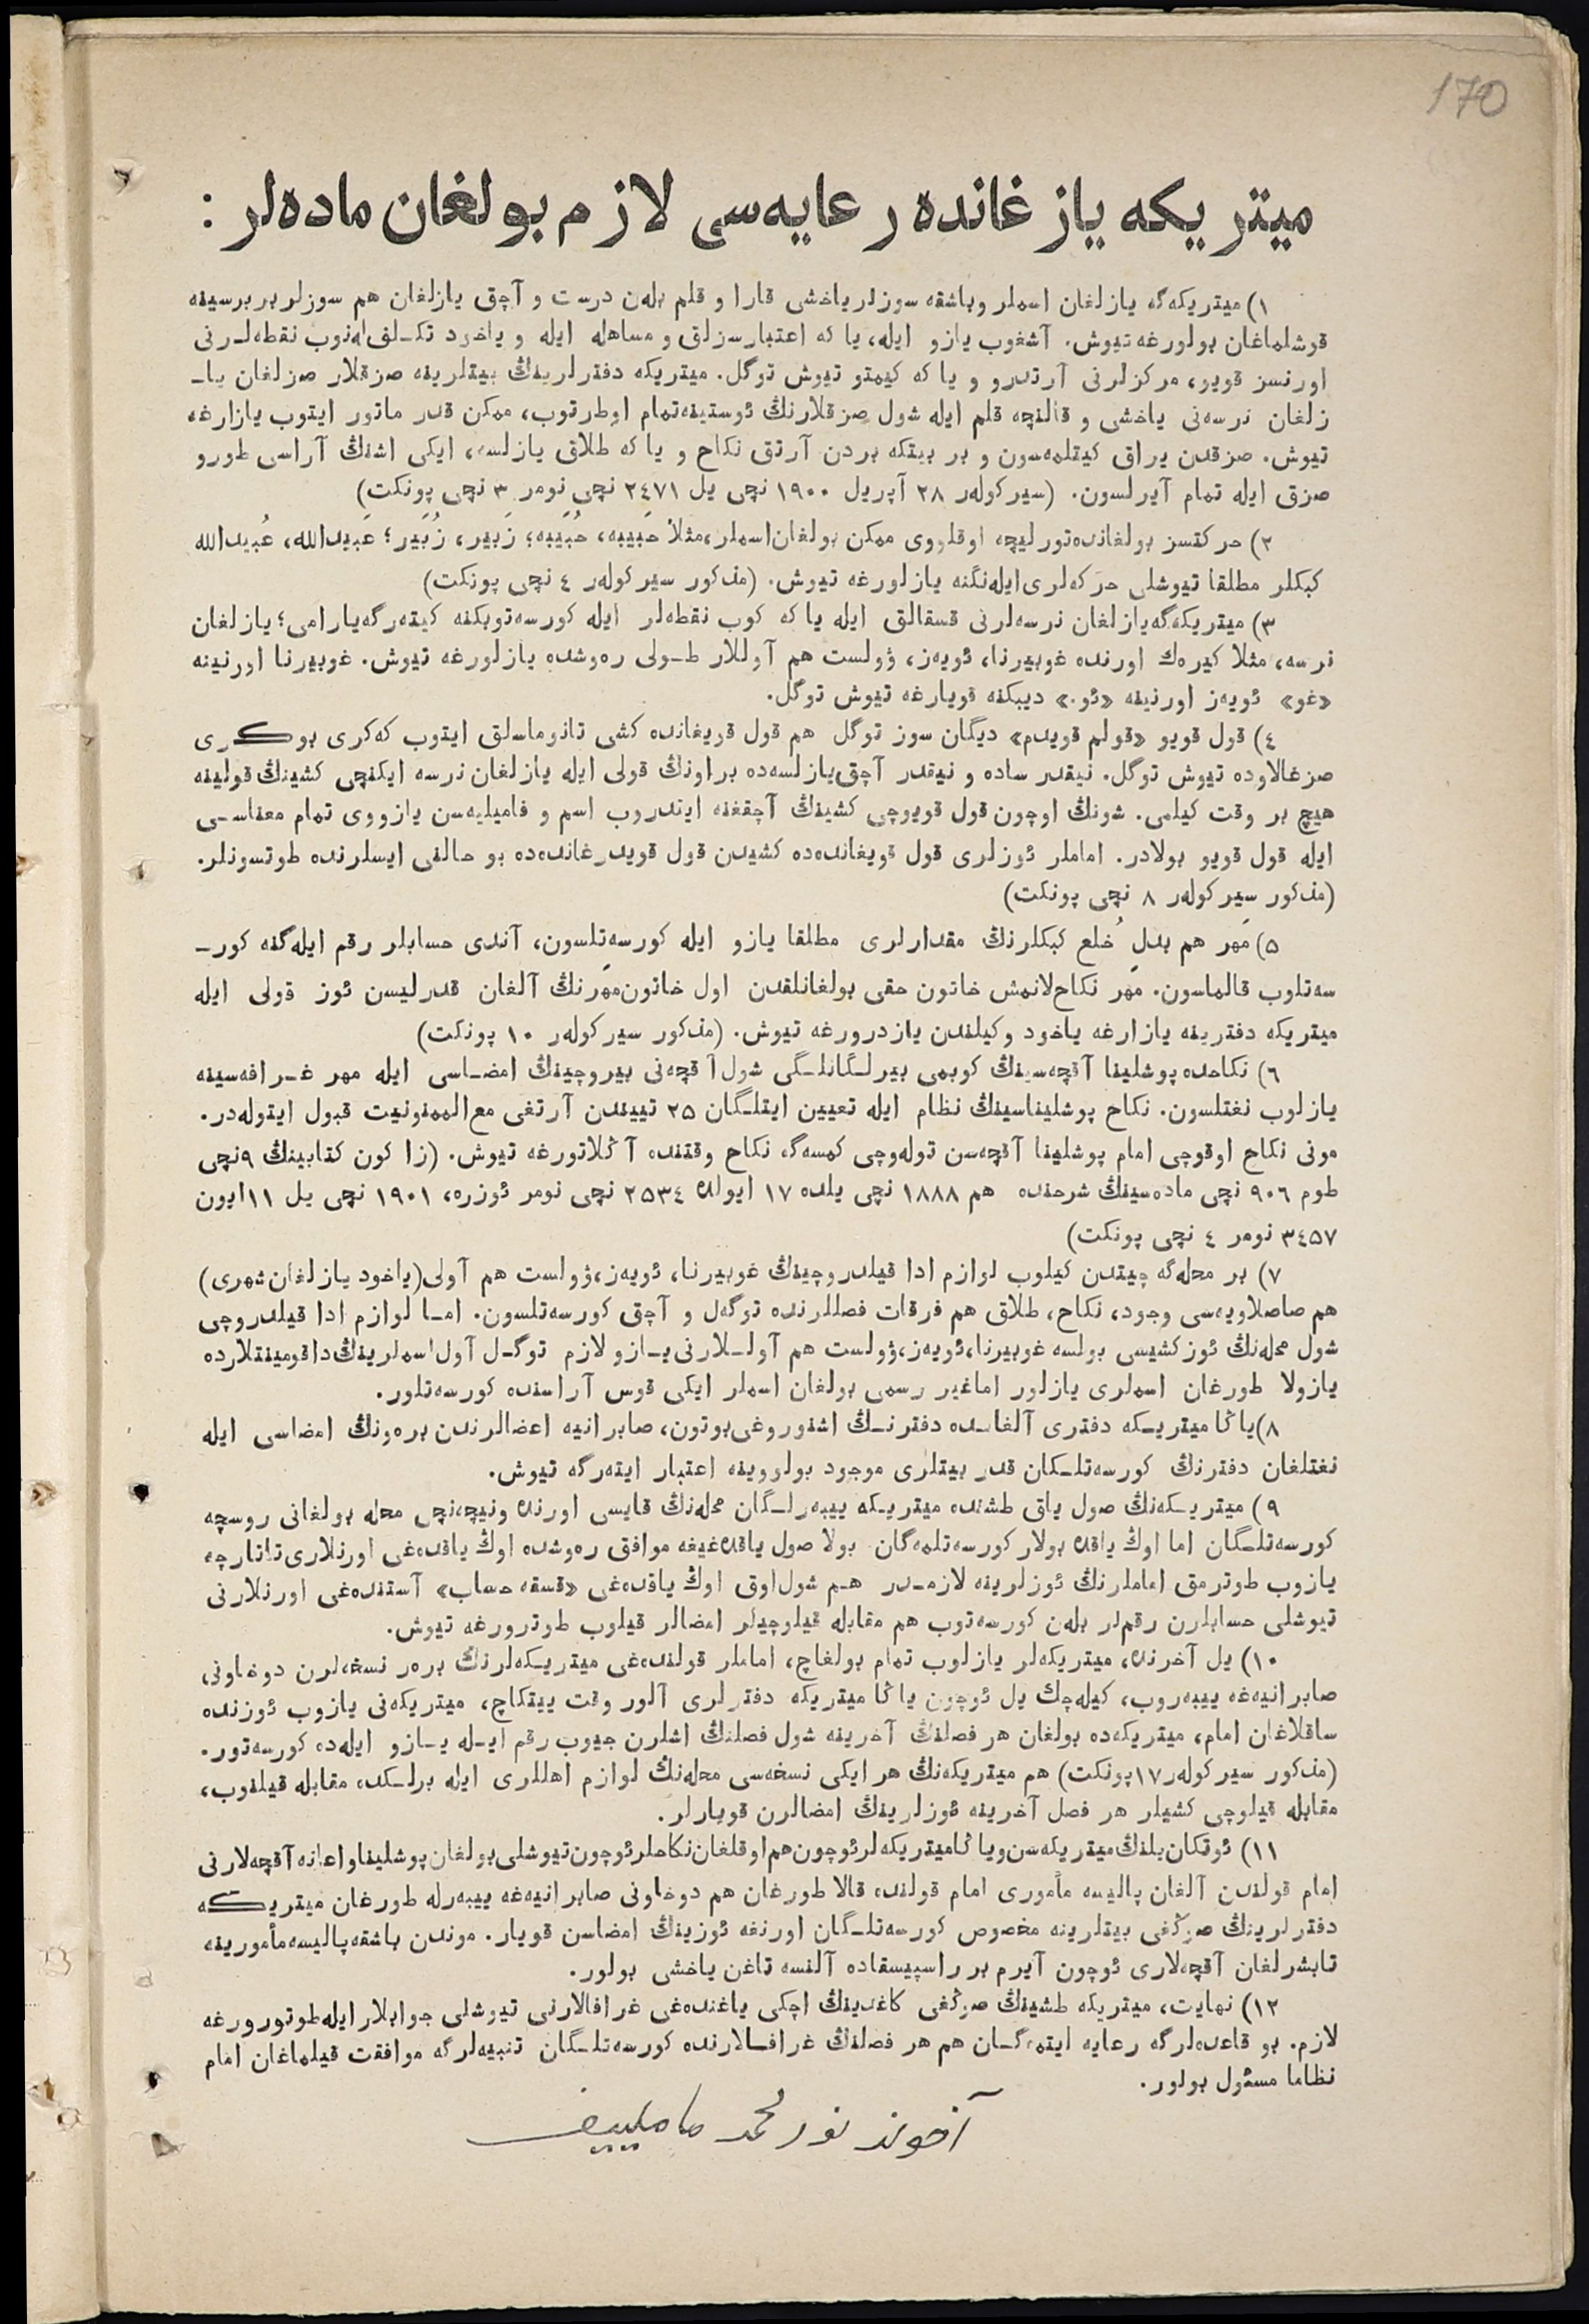 170
ميتريكه يازغانده رعايه‌سى لازم بولغان ماده‌لر :
١) ميتريكه‌گه يازلغان اسملر وباشقه سوزلر ياخشى قارا و قلم بله‌ن درست و آچق يازلغان هم سوزلر بربرسينه
قوشلماغان بولورغه تيوش. آشغوب يازو ايله، يا كه اعتبارسزلق و مساهله ايله و ياخود تكـلف‌له‌نوب نقطه‌لـرنى
اورنسز قويو، مركزلرنى آرتدرو و يا كه كيمتو تيوش توگل. ميتريكه دفترلرينڭ بيتلرينه صزقلار صزلغان يا-
زلغان نرسه‌نى ياخشى و قالنچه قلم ايله شول صزقلارنڭ ئوستينه‌تمام اوطرتوب، ممكن قدر ماتور ايتوب يازارغه
تيوش. صزقدن يراق كيتلمه‌سون و بر بيتكه بردن آرتق نكاح و يا كه طلاق يازلسه، ايكى اشنڭ آراسى طورو
صزق ايله تمام آيرلسون. (سيركوله‌ر ٢٨ آپريل ١٩٠٠ نچى يل ٢٤٧١ نچى نومر ٣ نچى پونكت)
٢) حركتسز بولغانده‌تورليچه اوقلووى ممكن بولغان‌اسملر،مثلا حَبيبه، حُبَيبه؛ زَبير، زُبَير؛ عَبيدالله، عُبيدالله
كبكلر مطلقا تيوشلى حرَكه‌لرى‌ايله‌نگنه يازلورغه تيوش. (مذكور سيركوله‌ر ٤ نچى پونكت)
٣) ميتريكه‌گه‌يازلغان نرسه‌لرنى قسقالق ايله يا كه كوب نقطه‌لر ايله كورسه‌توبكنه كيته‌رگه‌يارامى؛ يازلغان
نرسه، مثلا كيره‌ك اورنده غوبيرنا، ئويه‌ز، ۋولست هم آوللار طـولى ره‌وشده يازلورغه تيوش. غوبيرنا اورنينه
«غو» ئويه‌ز اورنينه «ئو.» ديبكنه قويارغه تيوش توگل.
٤) قول قويو «قولم قويدم» ديگان سوز توگل هم قول قويغانده كشى تانوماسلق ايتوب كه‌كرى بوكـرى
صزغالاوده تيوش توگل. نيقدر ساده و نيقدر آچق‌يازلسه‌ده براونڭ قولى ايله يازلغان نرسه ايكنچى كشينڭ قولينه
هيچ بر وقت كيلمى. شونڭ اوچون قول قويوچى كشينڭ آچقغنه ايتدروب اسم و فاميليه‌سن يازووى تمام معناسـى
ايله قول قويو بولادر. اماملر ئوزلرى قول قويغانده‌ده كشيدن قول قويدرغانده‌ده بو حالنى ايسلرنده طوتسونلر.
(مذكور سيركوله‌ر ٨ نچى پونكت)
٥) مَهر هم بدلِ خُلع كبكلرنڭ مقدارلرى مطلقا يازو ايله كورسه‌تلسون، آندى حسابلر رقم ايله‌گنه كور-
سه‌تلوب قالماسون. مَهر نكاح‌لانمش خاتون حقى بولغانلقدن اول خاتون‌مَهرنڭ آلغان قدرليسن ئوز قولى ايله
ميتريكه دفترينه يازارغه ياخود وكيلندن يازدرورغه تيوش. (مذكور سيركوله‌ر ١٠ پونكت)
٦) نكاحده پوشلينا آقچه‌سينڭ كوبمى بيرلـگانلـگى شول آقچه‌نى بيروچينڭ امضـاسى ايله مهر غـرافه‌سينه
يازلوب نغتلسون. نكاح پوشليناسينڭ نظام ايله تعيين ايتلـگان ٢٥ تييندن آرتغى مع‌الممنونيت قبول ايتوله‌در.
مونى نكاح اوقوچى امام پوشلينا آقچه‌سن توله‌وچى كمسه‌گه نكاح وقتنده آڭلاتورغه تيوش. (زاكون كتابينڭ ٩نچى
طوم ٩٠٦ نچى ماده‌سينڭ شرحنده هم ١٨٨٨ نچى يلده ١٧ ايولده ٢٥٣٤ نچى نومر ئوزره، ١٩٠١ نچى يل ١١ايون
٣٤٥٧ نومر ٤ نچى پونكت)
٧) بر محله‌گه چيتدن كيلوب لوازم ادا قيلدروچينڭ غوبيرنا، ئويه‌ز،ۋولست هم آولى(ياخود يازلغان‌شهرى)
هم صاصلاويه‌سى وجود، نكاح، طلاق هم فرقات فصللرنده توگه‌ل و آچق كورسه‌تلسون. امـا لوازم ادا قيلدروچى
شول محله‌نڭ ئوزكشيسى بولسه غوبيرنا،ئويه‌ز،ۋولست هم آولـلارنى‌يـازو لازم توگـل آول‌اسملرينڭ‌داقومينتلارده
يازولا طورغان اسملرى يازلور اماغير رسمى بولغان اسملر ايكى قوس آراسنده كورسه‌تلور.
٨)ياڭا ميتريـكه دفترى آلغانـده دفترنـڭ اشنوروغى‌بوتون، صابرانيه اعضالرندن بره‌ونڭ امضاسى ايله
نغتلغان دفترنڭ كورسه‌تلـكان قدر بيتلرى موجود بولووينه اعتبار ايته‌رگه تيوش.
٩) ميتريـكه‌نڭ صول ياق طشنده ميتريـكه ييبه‌رلـگان محله‌نڭ قايسى اورنده ونيچه‌نچى محله بولغانى روسچه
كورسه‌تلـگان اما اوڭ ياقده بولار كورسه‌تلمه‌گان. بولا صول ياقده‌غيغه موافق ره‌وشده اوڭ ياقده‌غى اورنلارى‌تاتارچه
يازوب طوترمق اماملرنڭ ئوزلرينه لازمـدر هـم شول‌اوق اوڭ ياقده‌غى «قسقه حساب» آستنده‌غى اورنلارنى
تيوشلى حسابلرن رقم‌لر بله‌ن كورسه‌توب هم مقابله قيلوچيلر امضالر قيلوب طوترورغه تيوش.
١٠) يل آخرنده، ميتريكه‌لر يازلوب تمام بولغاچ، اماملر قولنده‌غى ميتريـكه‌لرنڭ بره‌ر نسخه‌لرن دوخاونى
صابرانيه‌غه ييبه‌روب، كيله‌چك يل ئوچون ياڭا ميتريكه دفترلرى آلور وقت ييتكاچ، ميتريكه‌نى يازوب ئوزنده
ساقلاغان امام، ميتريكه‌ده بولغان هر فصلنڭ آخرينه شول فصلنڭ اشلرن جيوب رقم ايـله يـازو ايله‌ده كورسه‌تور.
(مذكور سيركوله‌ر١٧پونكت) هم ميتريكه‌نڭ هر ايكى نسخه‌سى محله‌نڭ لوازم اهللرى ايله برلـكده مقابله قيلنوب،
مقابله قيلوچى كشيلر هر فصل آخرينه ئوزلرينڭ امضالرن قويارلر.
١١) ئوتكان‌يلنڭ‌ميتريكه‌سن‌وياڭاميتريكه‌لرئوچون‌هم‌اوقلغان‌نكاحلرئوچون‌تيوشلى‌بولغان‌پوشليناواعانه‌آقچه‌لارنى
امام قولندن آلغان پاليسه مأمورى امام قولنده قالا طورغان هم دوخاونى صابرانيه‌غه ييبه‌رله طورغان ميتريـكه
دفترلرينڭ صوڭغى بيتلرينه مخصوص كورسه‌تلـگان اورنغه ئوزينڭ امضاسن قويار. موندن باشقه‌پاليسه‌مأمورينه
تابشرلغان آقچه‌لارى ئوچون آيرم بر راسپيسقاده آلنسه تاغن ياخشى بولور.
١٢) نهايت، ميتريكه طشينڭ صوڭغى كاغدينڭ اچكى ياغنده‌غى غرافالارنى تيوشلى جوابلار ايله‌طوتورورغه
لازم. بو قاعده‌لرگه رعايه ايتمه‌گـان هم هر فصلنڭ غرافـالارنده كورسه‌تلـگان تنبيه‌لرگه موافقت قيلماغان امام
نظاما مسئول بولور.
آخوند نورمحمد ماملييف